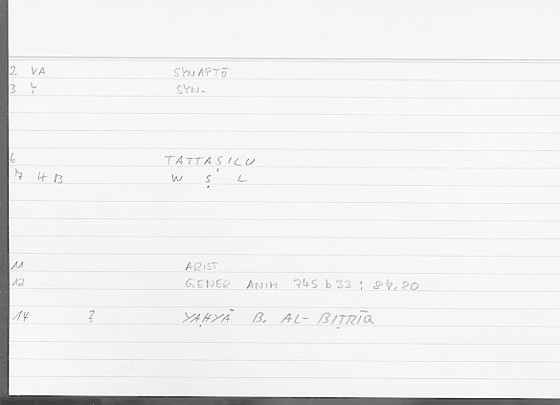 2 VA SYNAPTŌ
3 Y SYN-
6 TATTAṢILU
7 H B W Ṣ L
11 ARIST
12 GENER ANIM 745 b 33 : 84,20
14 ? YAḤYĀ B. AL-BIṬRĪQ